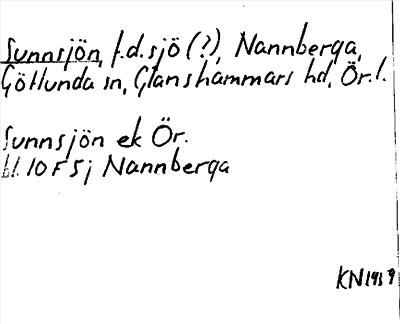 Sunnsjön, f.d. sjö (?), Nannberga,
Götlunda sn, Glanshammars hd, Ör. l.
Sunnsjön ek Ör.
bl. 10 F 5 j Nannberga